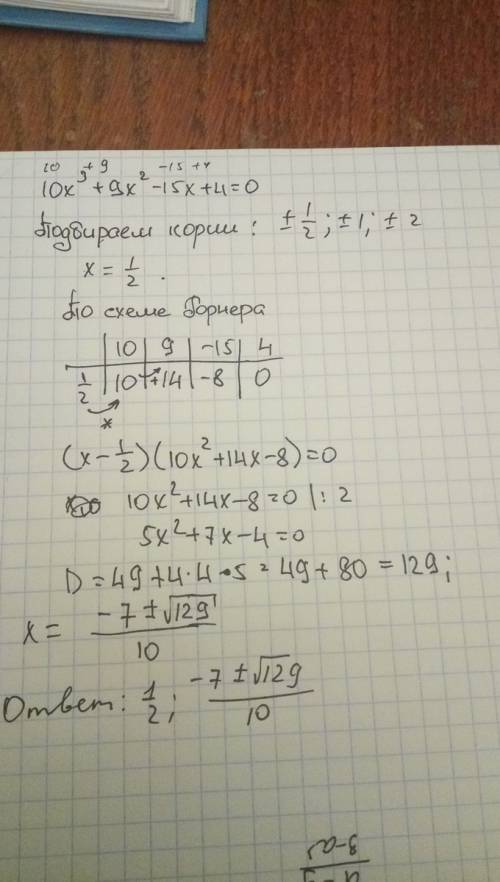 10 + 9 -15 +4
10x³ + 9x² - 15x + 4 = 0
Подбираем корни: ± 1/2; ± 1; ± 2
x = 1/2.
По схеме Горнера
10 | 9 | -15 | 4
1/2 | 10 | +14 | -8 | 0
*
(x - 1/2)(10x² + 14x - 8) = 0
10x² + 14x - 8 = 0 |: 2
5x² + 7x - 4 = 0
D = 49 + 4·4·5 = 49 + 80 = 129;
x = (-7 ± √129)/10
Ответ: 1/2; (-7 ± √129)/10